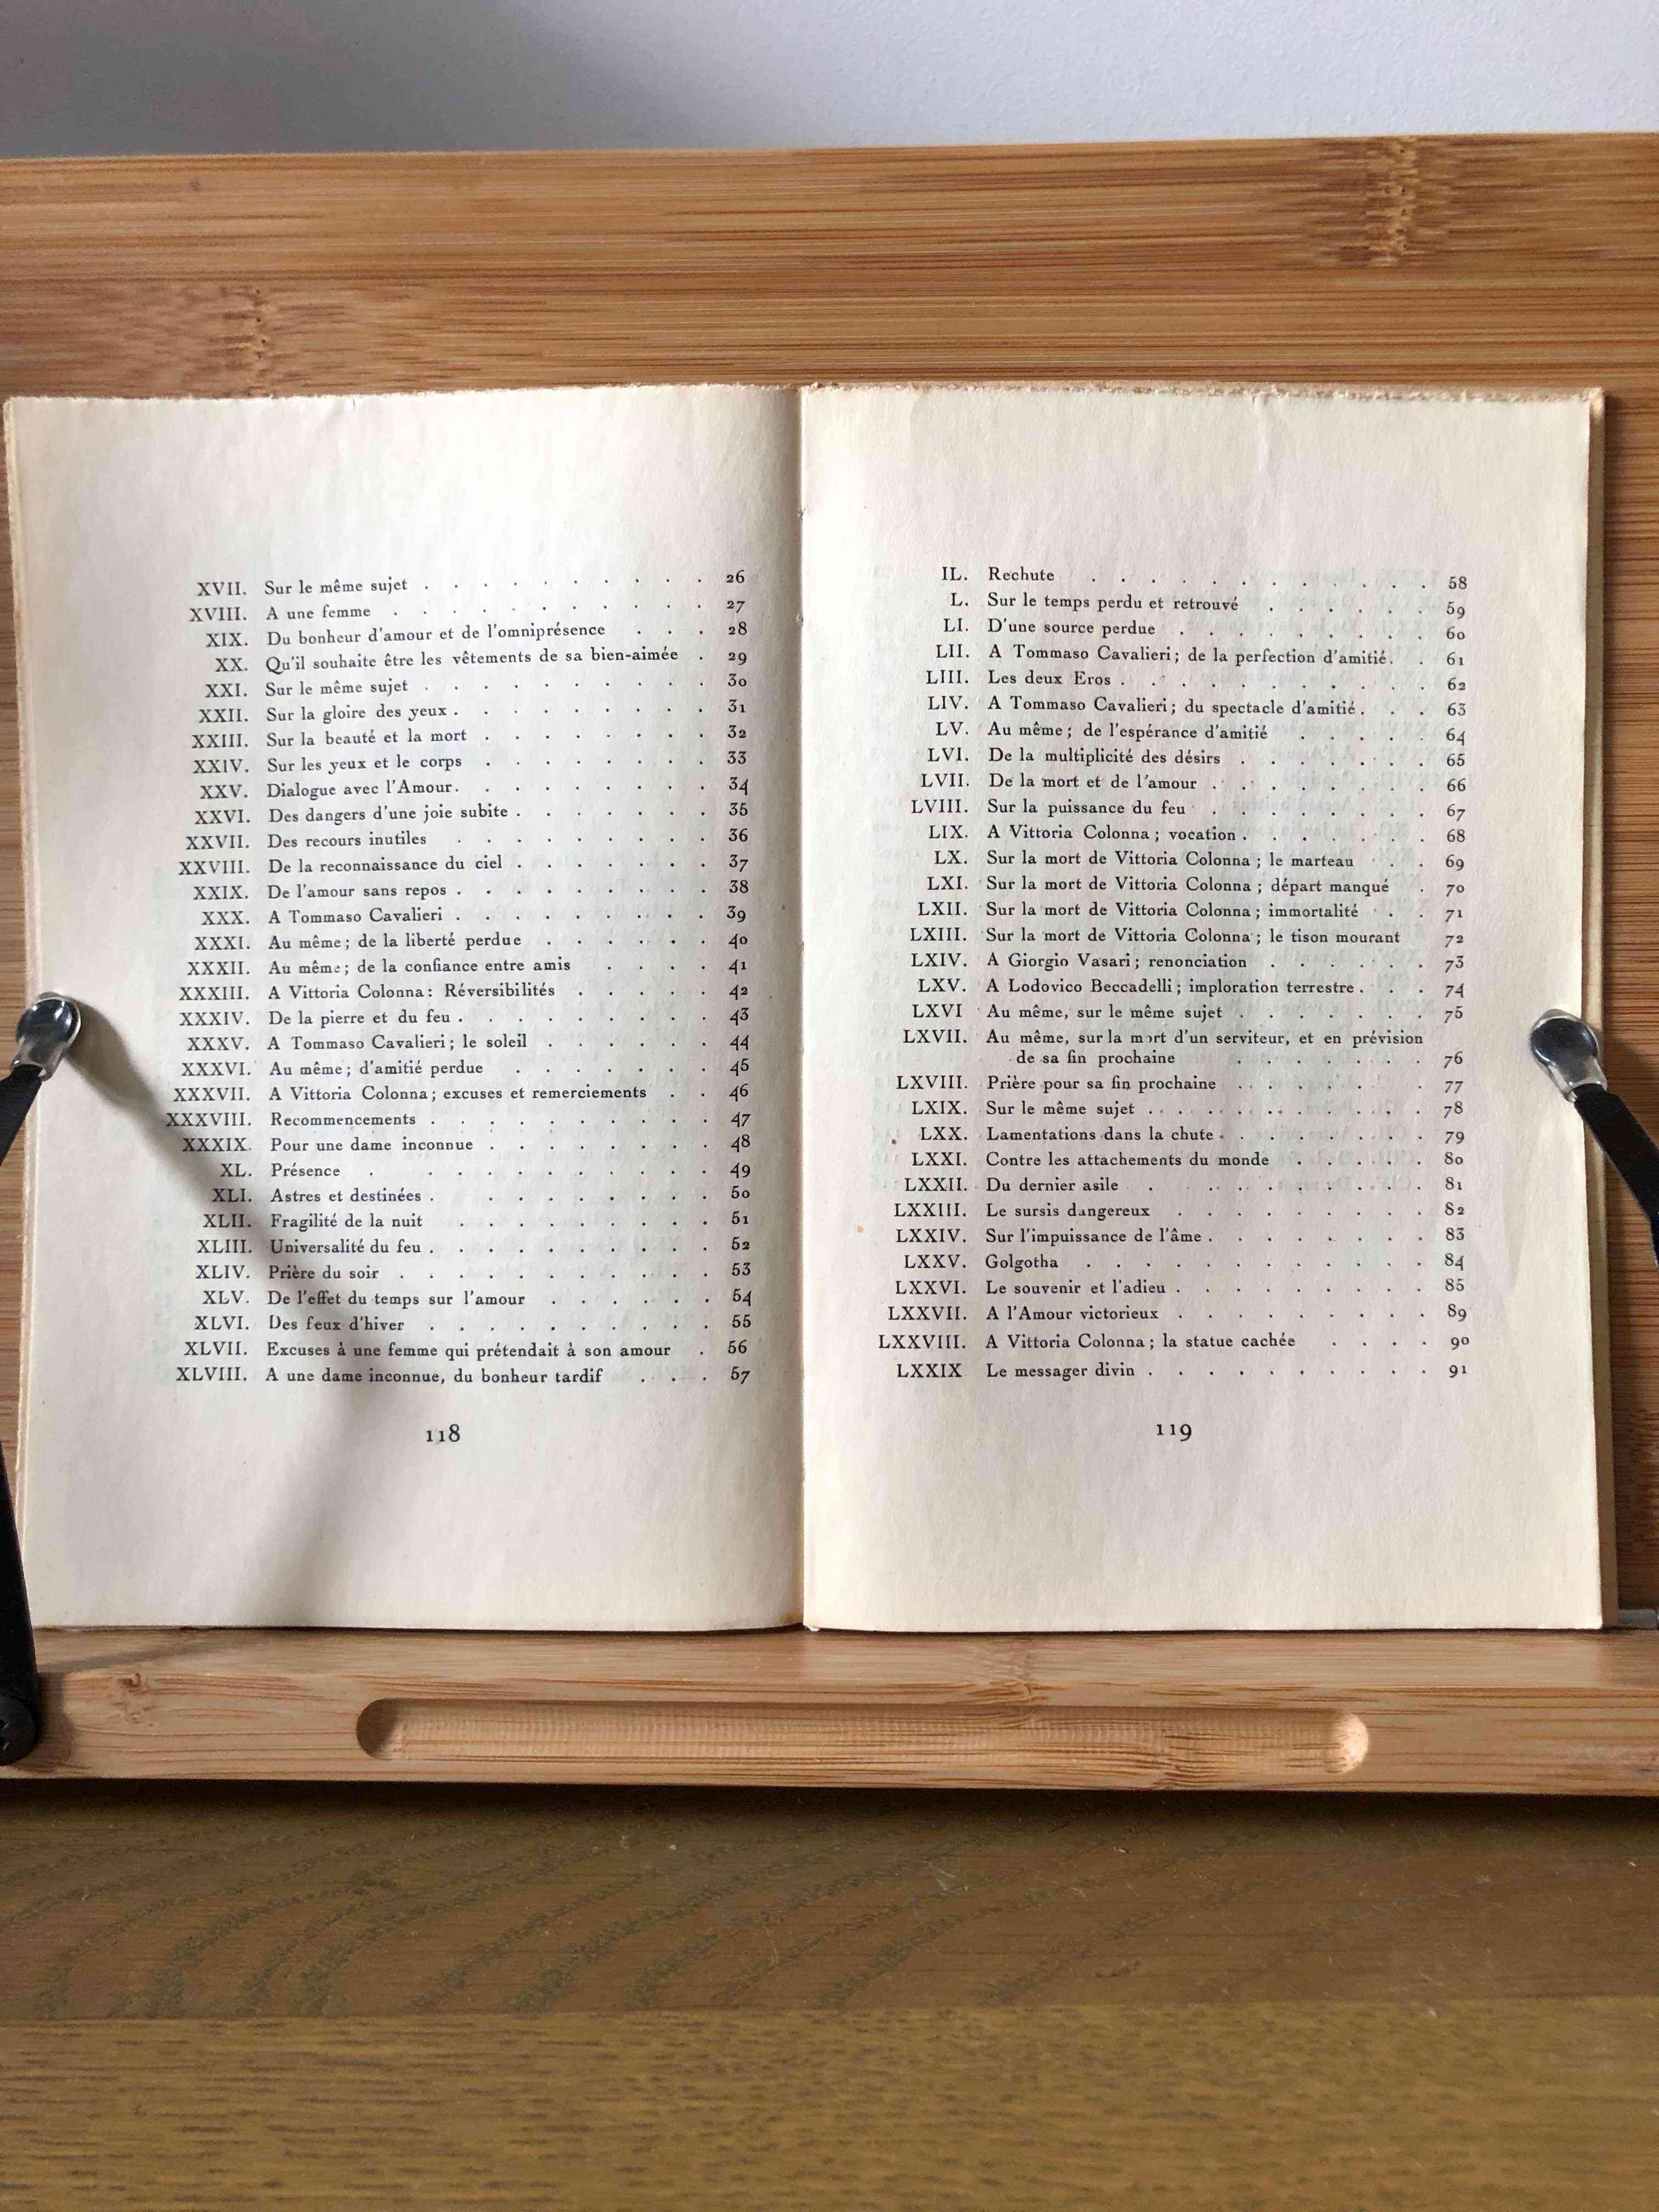 XVII. Sur le même sujet . . . . . . . . . . 26
XVIII. A une femme . . . . . . . . . . . 27
XIX. Du bonheur d'amour et de l'omniprésence . . . 28
XX. Qu'il souhaite être les vêtements de sa bien-aimée . 29
XXI. Sur le même sujet . . . . . . . . . . 30
XXII. Sur la gloire des yeux . . . . . . . . . 31
XXIII. Sur la beauté et la mort . . . . . . . . 32
XXIV. Sur les yeux et le corps . . . . . . . . 33
XXV. Dialogue avec l'Amour . . . . . . . . . 34
XXVI. Des dangers d'une joie subite . . . . . . . 35
XXVII. Des recours inutiles . . . . . . . . . 36
XXVIII. De la reconnaissance du ciel . . . . . . . 37
XXIX. De l'amour sans repos . . . . . . . . . 38
XXX. A Tommaso Cavalieri . . . . . . . . . 39
XXXI. Au même ; de la liberté perdue . . . . . . 40
XXXII. Au même ; de la confiance entre amis . . . . 41
XXXIII. A Vittoria Colonna : Réversibilités . . . . . 42
XXXIV. De la pierre et du feu . . . . . . . . . 43
XXXV. A Tommaso Cavalieri ; le soleil . . . . . . 44
XXXVI. Au même ; d'amitié perdue . . . . . . . 45
XXXVII. A Vittoria Colonna ; excuses et remerciements . . 46
XXXVIII. Recommencements . . . . . . . . . . 47
XXXIX. Pour une dame inconnue . . . . . . . . 48
XL. Présence . . . . . . . . . . . 49
XLI. Astres et destinées . . . . . . . . . 50
XLII. Fragilité de la nuit . . . . . . . . . 51
XLIII. Universalité du feu . . . . . . . . . . 52
XLIV. Prière du soir . . . . . . . . . . . 53
XLV. De l'effet du temps sur l'amour . . . . . . 54
XLVI. Des feux d'hiver . . . . . . . . . . 55
XLVII. Excuses à une femme qui prétendait à son amour . 56
XLVIII. A une dame inconnue, du bonheur tardif . . . 57
118
IL. Rechute . . . . . . . . . . . . 58
L. Sur le temps perdu et retrouvé . . . . . . 59
LI. D'une source perdue . . . . . . . . . 60
LII. A Tommaso Cavalieri ; de la perfection d'amitié . . 61
LIII. Les deux Eros . . . . . . . . . . . 62
LIV. A Tommaso Cavalieri ; du spectacle d'amitié . . . 63
LV. Au même ; de l'espérance d'amitié . . . . . 64
LVI. De la multiplicité des désirs . . . . . . . 65
LVII. De la mort et de l'amour . . . . . . . . 66
LVIII. Sur la puissance du feu . . . . . . . . 67
LIX. A Vittoria Colonna ; vocation . . . . . . . 68
LX. Sur la mort de Vittoria Colonna ; le marteau . . 69
LXI. Sur la mort de Vittoria Colonna ; départ manqué . 70
LXII. Sur la mort de Vittoria Colonna ; immortalité . . 71
LXIII. Sur la mort de Vittoria Colonna ; le tison mourant 72
LXIV. A Giorgio Vasari ; renonciation . . . . . . 73
LXV. A Lodovico Beccadelli ; imploration terrestre . . . 74
LXVI Au même, sur le même sujet . . . . . . . 75
LXVII. Au même, sur la mort d'un serviteur, et en prévision
de sa fin prochaine . . . . . . . 76
LXVIII. Prière pour sa fin prochaine . . . . . . . 77
LXIX. Sur le même sujet . . . . . . . . . . 78
LXX. Lamentations dans la chute . . . . . . . . 79
LXXI. Contre les attachements du monde . . . . . 80
LXXII. Du dernier asile . . . . . . . . . . 81
LXXIII. Le sursis dangereux . . . . . . . . . 82
LXXIV. Sur l'impuissance de l'âme . . . . . . . . 83
LXXV. Golgotha . . . . . . . . . . . . 84
LXXVI. Le souvenir et l'adieu . . . . . . . . . 85
LXXVII. A l'Amour victorieux . . . . . . . . . 89
LXXVIII. A Vittoria Colonna ; la statue cachée . . . . 90
LXXIX Le messager divin . . . . . . . . . . 91
119